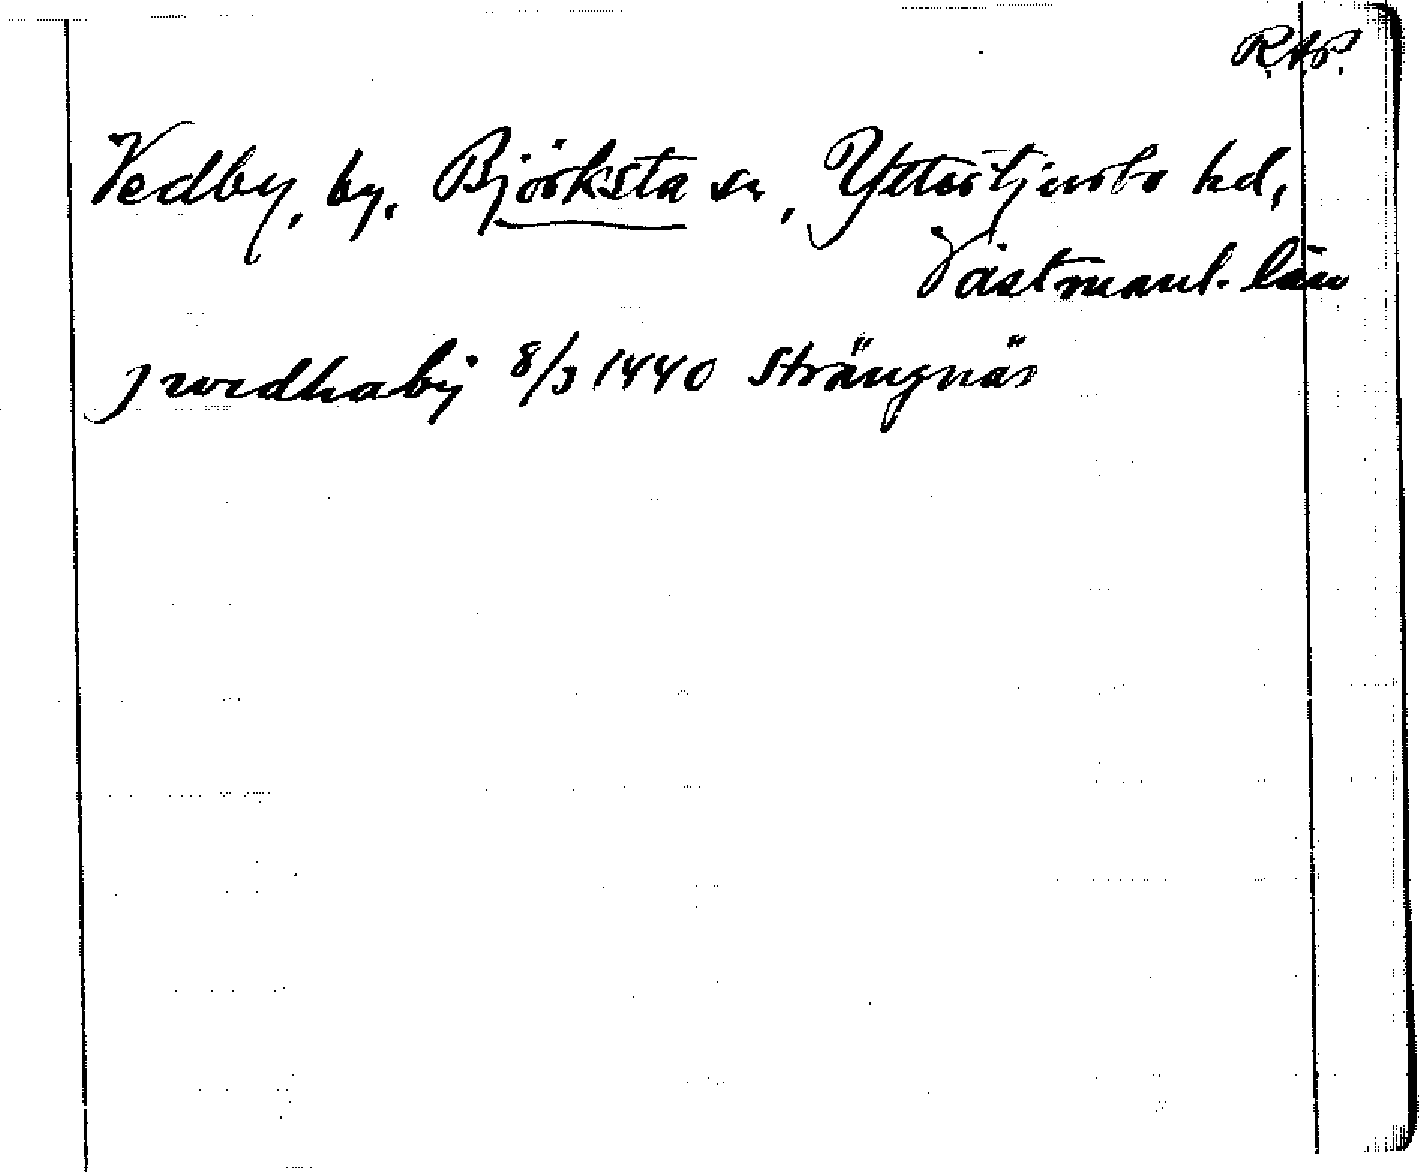 R.A.P.
Vedby, by, Björksta sn, Yttertjurbo hd,
Västmanl. län
J wedhaby 8/3 1440 Strängnäs